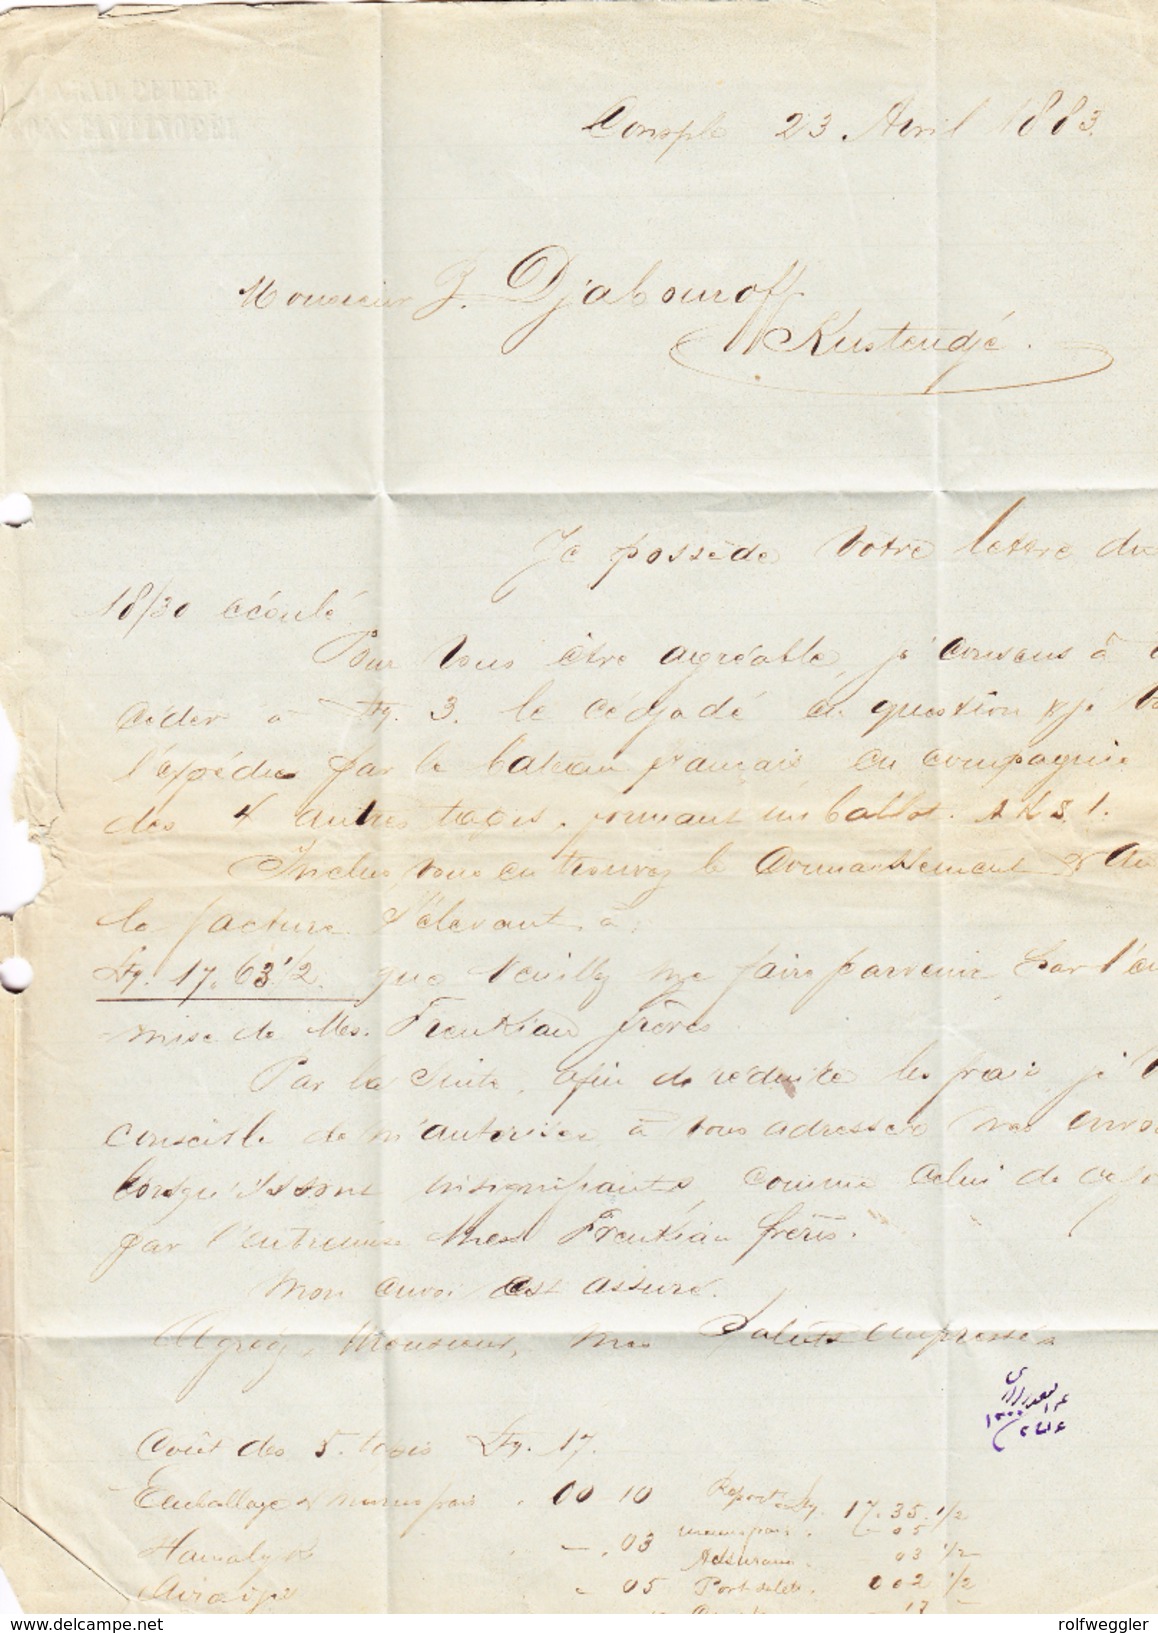 Consple 23 Avril 1883.
Monsieur J. Djabouroff
Kustendjé.
Je possède Votre lettre du
18/30 écoulé.
Pour Vous être agréable, je consens à
céder à Ltq. 3. le cédjadé en question & je
l'expédie par le bateau français en compagnie
des 4 autres tapis, formant un ballot. AKS 1.
Inclus, vous en trouvez le Connaissement &
la facture S'élevant à:
Ltq. 17.63 1/2. que Veuillez me faire parvenir par l'en
mise de Mes. Frenkian frères
Par la Suite, afin de réduire les frais, je
conseille de m'autoriser à vous adresser nos envo
lorsqu'ils sont insignifiants, comme celui de ce jo
par l'entremise Mess Frenkian frères.
Mon envoi est assuré.
Agréez, Monsieur, mes Saluts empressés
Coût des 5. tapis Ltq. 17.
Emballage & menus frais . 00 10
Report Ltq. 17.35.1/2
Hamalye — . 03
menus frais . — 05
Assurance . 03 1/2
05
Port de lett. . 002 1/2
rolfweggler